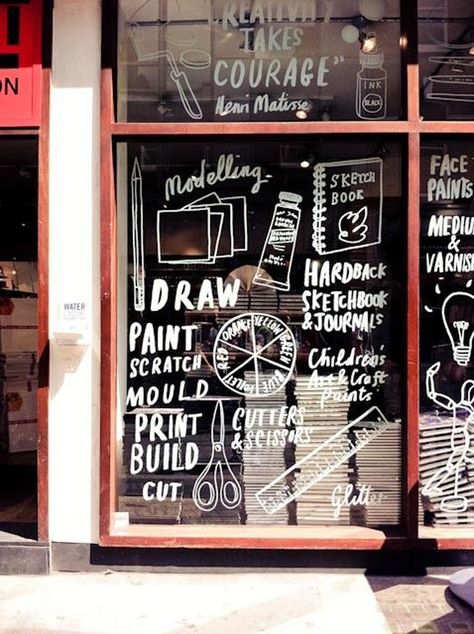 T
ON
CREATIVITY
TAKES
COURAGE"
Henri Matisse
BLACK
INK
Modelling
SKETCH
BOOK
FACE
PAINTS
MEDIUM
&
VARNISH
WATER
HARDBACK
SKETCHBOOK
& JOURNALS
DRAW
PAINT
SCRATCH
MOULD
PRINT
BUILD
CUT
RED ORANGE YELLOW GREEN BLUE VIOLET
Children's
Art & Craft
Paints
CUTTERS
& SCISSORS
Glitter